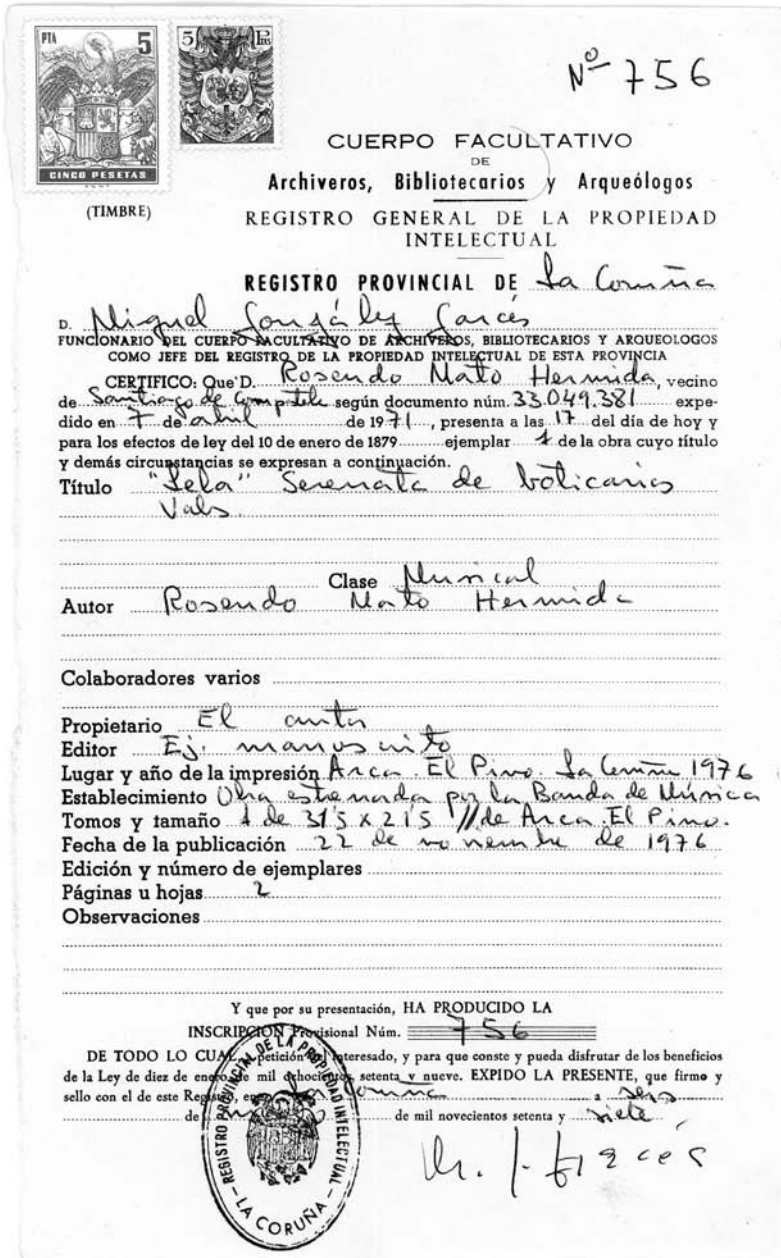 PTA 5
5 Pts
CINCO PESETAS
(TIMBRE)
Nº 756
CUERPO FACULTATIVO
DE
Archiveros, Bibliotecarios y Arqueólogos
REGISTRO GENERAL DE LA PROPIEDAD
INTELECTUAL
REGISTRO PROVINCIAL DE La Coruña
D. Miguel González Garcés
FUNCIONARIO DEL CUERPO FACULTATIVO DE ARCHIVEROS, BIBLIOTECARIOS Y ARQUEOLOGOS
COMO JEFE DEL REGISTRO DE LA PROPIEDAD INTELECTUAL DE ESTA PROVINCIA
CERTIFICO: Que D. Rosendo Mato Hermida, vecino
de Santiago de Compostela según documento núm. 33.049.381 expe-
dido en 7 de abril de 1971, presenta a las 17 del día de hoy y
para los efectos de ley del 10 de enero de 1879 ejemplar 1 de la obra cuyo título
y demás circunstancias se expresan a continuación.
Título "Lela" Serenata de boticarios
Vals.
Clase Musical
Autor Rosendo Mato Hermida
Colaboradores varios
Propietario El autor
Editor Ej. manuscrito
Lugar y año de la impresión Arca. El Pino. La Coruña 1976
Establecimiento Obra estrenada por la Banda de Música
Tomos y tamaño 1 de 31'5 x 21'5 // de Arca. El Pino.
Fecha de la publicación 22 de noviembre de 1976
Edición y número de ejemplares
Páginas u hojas 2
Observaciones
Y que por su presentación, HA PRODUCIDO LA
INSCRIPCION Provisional Núm. 756
DE TODO LO CUAL, a petición del interesado, y para que conste y pueda disfrutar de los beneficios
de la Ley de diez de enero de mil ochocientos setenta y nueve. EXPIDO LA PRESENTE, que firmo y
sello con el de este Registro, en La Coruña a seis
de de mil novecientos setenta y siete
REGISTRO PROVINCIAL DE LA PROPIEDAD INTELECTUAL - LA CORUÑA -
M. G. Garcés